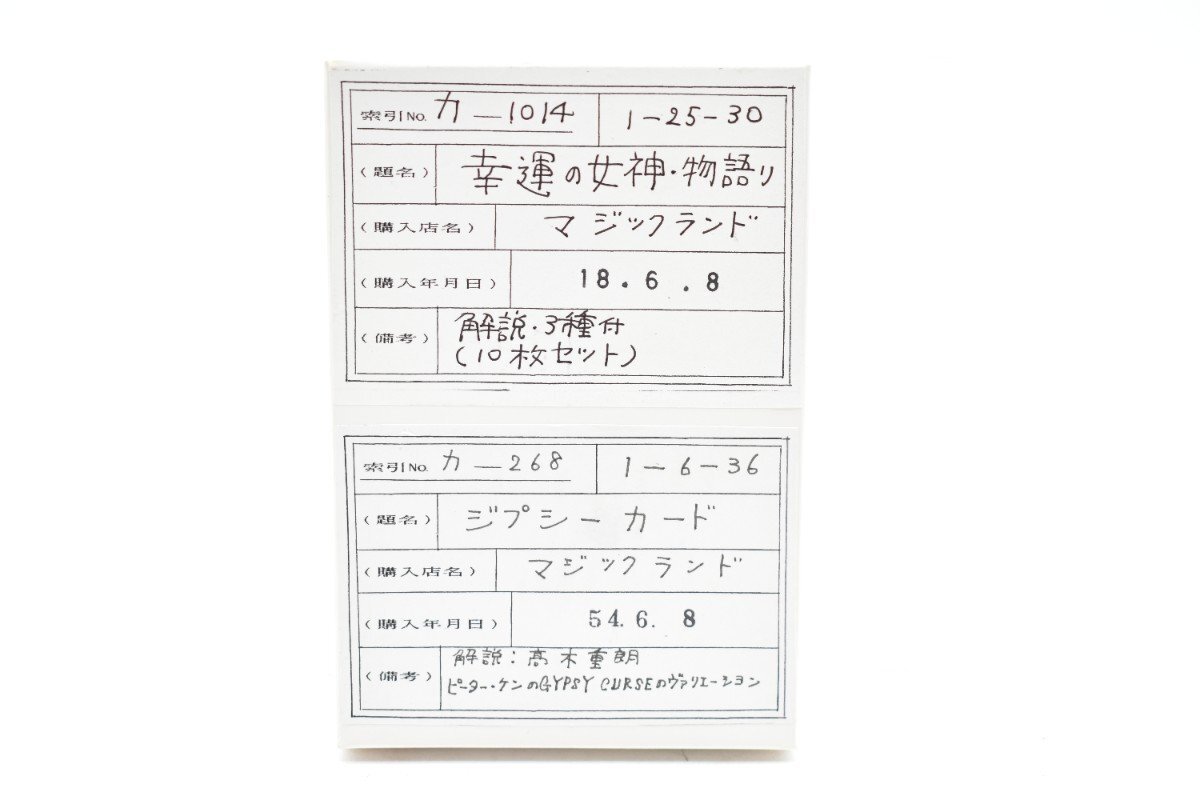 索引No. カ—1014 1-25-30
(題名) 幸運の女神・物語り
(購入店名) マジックランド
(購入年月日) 18.6.8
(備考) 解説・3種付
(10枚セット)
索引No. カ—268 1-6-36
(題名) ジプシーカード
(購入店名) マジックランド
(購入年月日) 54.6.8
(備考) 解説:高木重朗
ピーター・ケンのGYPSY CURSEのヴァリエーション